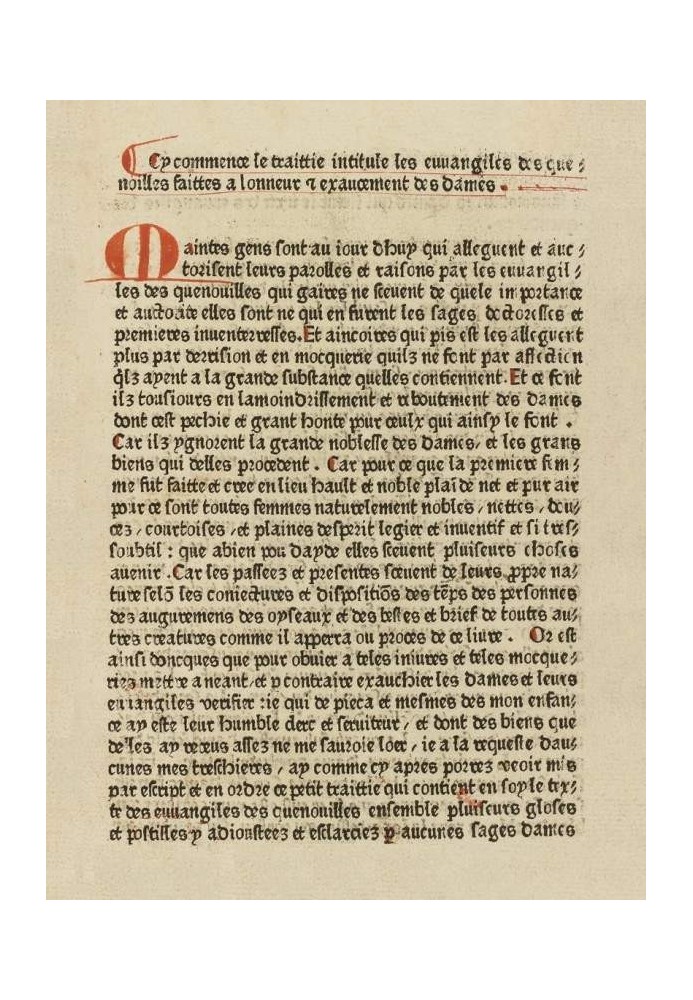 Cy commence le traittie intitule les euuangiles des que⸗
noilles faittes a lonneur ⁊ exaucement des dames .
Maintes gens sont au iour dhuy qui alleguent et auc⸗
torisent leurs parolles et raisons par les euuangil⸗
les des quenouilles qui gaires ne sceuent de quele importance
et auctorite elles sont ne qui en furent les sages doctoresses et
premieres inuenterresses. Et aincoires qui pis est les alleguent
plus par derrision et en mocquerie quilz ne font par affection
q̃lz ayent a la grande substance quelles contiennent. Et ce font
ilz tousiours en lamoindrissement et reboutement des dames
dont cest pechie et grant honte pour ceulx qui ainsy le font .
Car ilz ygnorent la grande noblesse des dames, et les grans
biens qui delles procedent . Car pour ce que la premiere fem⸗
me fut faitte et cree en lieu hault et noble plaĩ de net et pur air
pour ce sont toutes femmes naturelement nobles / nettes / doul⸗
cez / courtoises / et plaines desperit legier et inuentif et si tres⸗
soubtil : que abien pou dayde elles sceuent pluiseurs choses
auenir . Car les passeez et presentes scœuent de leurs ꝓpre na⸗
ture selõ les coniectures et dispositiõs des tẽps des personnes
des auguremens des oyseaux et des bestes et brief de toutes au⸗
tres creatures comme il apperra ou proces de ce liure . Or est
ainsi doncques que pour obuier a teles iniures et teles mocque⸗
riez mettre a neant / et y contraire exauchier les dames et leurs
euuangiles verifier : ie qui de pieca et mesmes des mon enfan⸗
ce ay este leur humble clerc et seruiteur / et dont des biens que
delles ay receus assez ne me sauroie löer / ie a la requeste dau⸗
cunes mes treschieres / ay comme cy apres porrez veoir mis
par escript et en ordre ce petit traittie qui contient en soy le tex⸗
te des euuangiles des quenouilles ensemble pluiseurs gloses
et postilles y adiousteez et esclarciez ꝑ aucunes sages dames